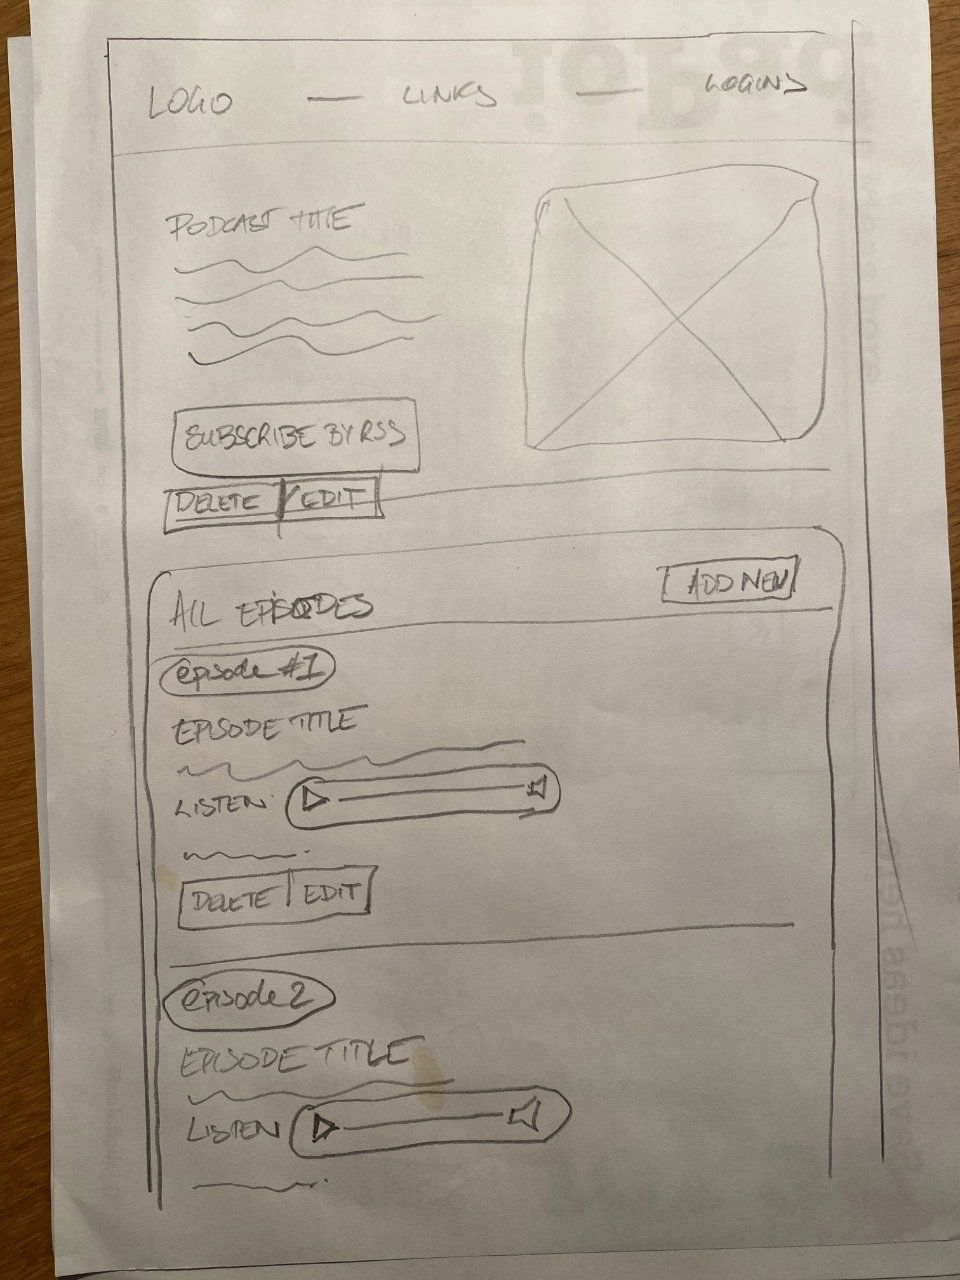 LOGO LINKS LOGINS
PODCAST TITLE
SUBSCRIBE BY RSS
DELETE EDIT
ALL EPISODES ADD NEW
episode #1
EPISODE TITLE
LISTEN
DELETE EDIT
episode 2
EPISODE TITLE
LISTEN